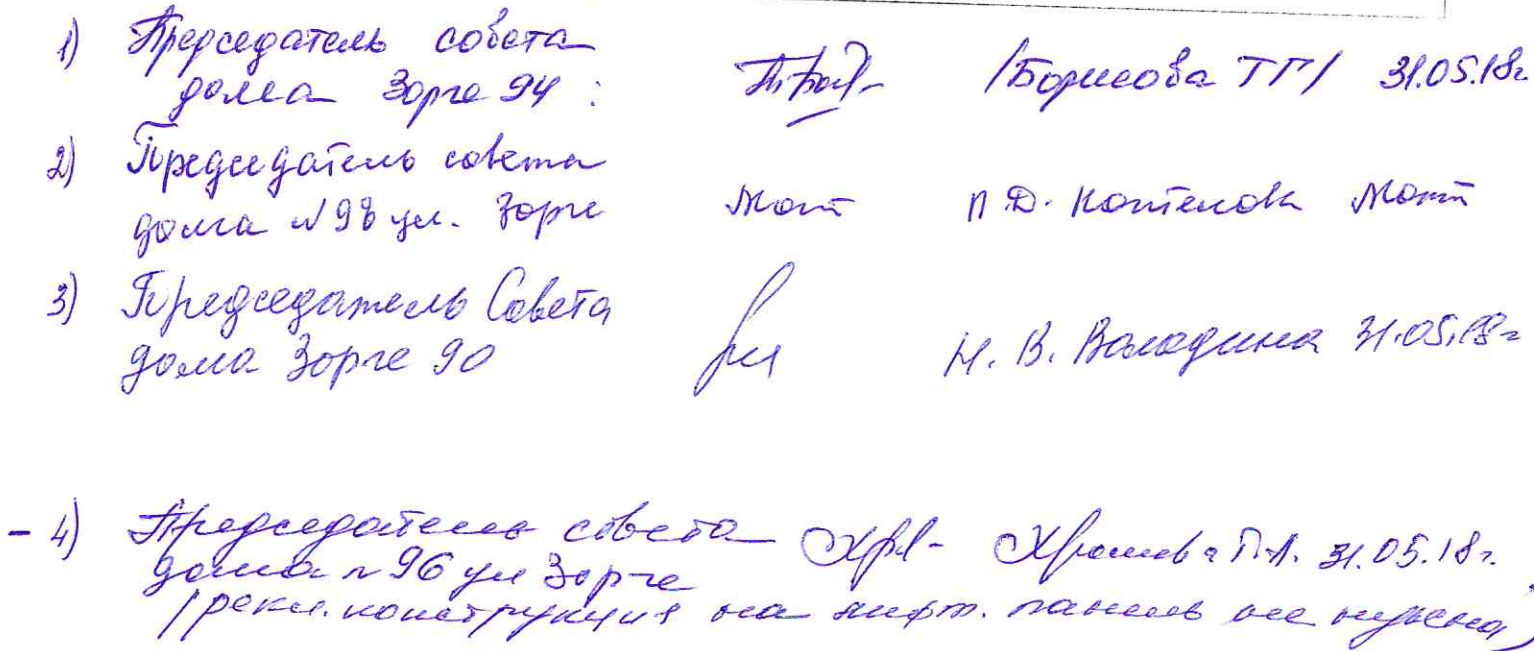 1) Председатель совета
дома Зорге 94 : /Борисова ТГ/ 31.05.18г
2) Председатель совета
дома №98 ул. Зорге
3) Председатель Совета
дома Зорге 90 Н. В. Володина 31.05.18г
- 4) Председатель совета 31.05.18г.
дома №96 ул Зорге
(рекл. конструкция на лифт. панель не нужна)